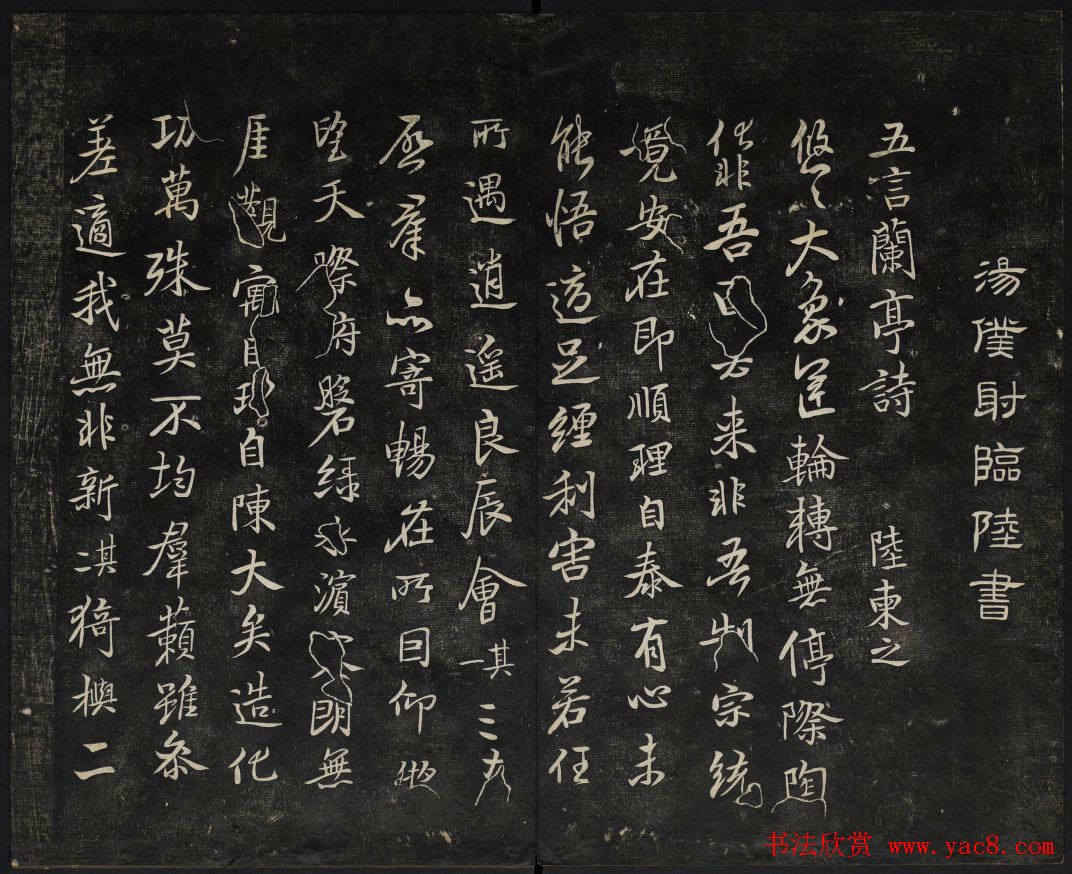 湯僕射臨陸書
五言蘭亭詩 陸東之
悠々大象運輪轉無停際陶
化非吾因去來非吾制宗統
竟安在即順理自泰有心未
能悟適足纏利害未若任
所遇逍遥良辰會其一三春
啓羣品寄暢在所因仰
望天際俯磐緑水濱寥朗無
厓觀寓目理自陳大矣造化
功萬殊莫不均羣籟雖参
差適我無非新其二猗與二
书法欣赏 www.yac8.com